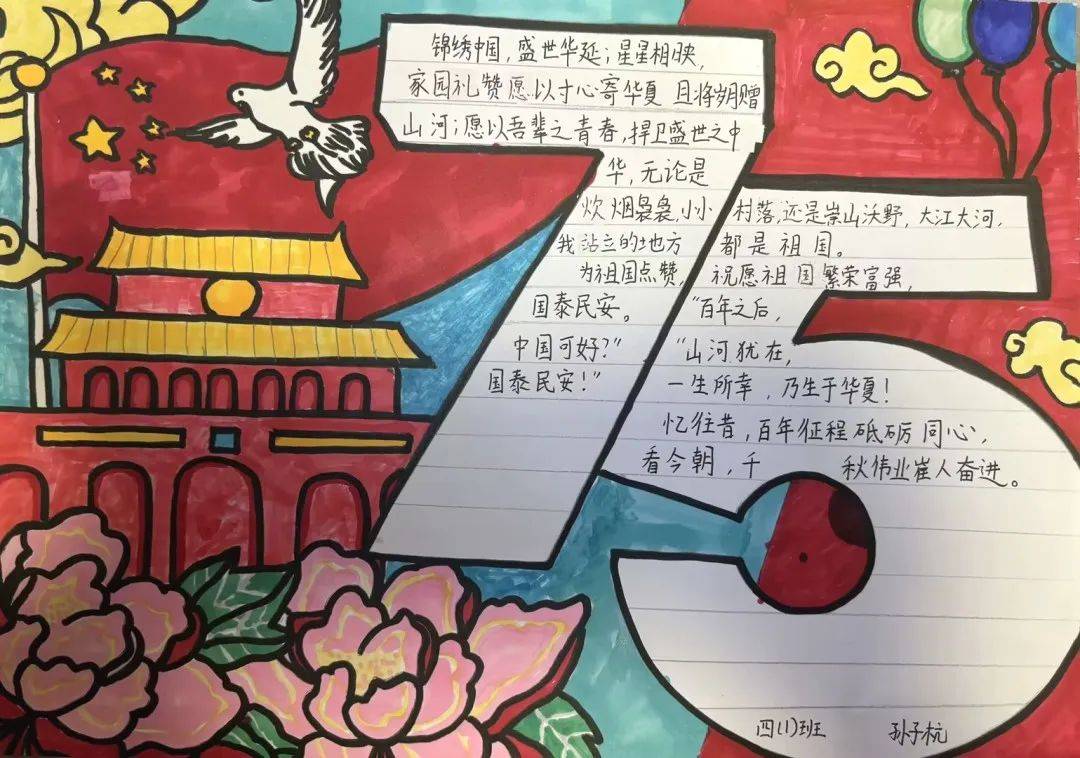 锦绣中国,盛世华延;星星相映,
家园礼赞愿以寸心寄华夏 且将岁月赠
山河;愿以吾辈之青春,捍卫盛世之中
华,无论是
炊烟袅袅,小小 村落,还是崇山沃野,大江大河,
我站立的地方 都是祖国。
为祖国点赞, 祝愿祖国繁荣富强,
国泰民安。 "百年之后,
中国可好?" "山河犹在,
国泰民安!" 一生所幸,乃生于华夏!
忆往昔,百年征程砥砺同心,
看今朝,千 秋伟业崔人奋进。
四(1)班 孙子杭